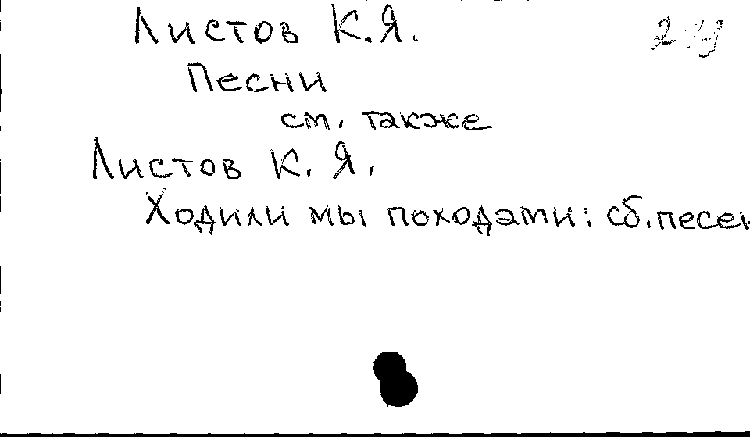 Листов К.Я.
Песни
см. также
Листов К. Я.
Ходили мы походами: сб. песен